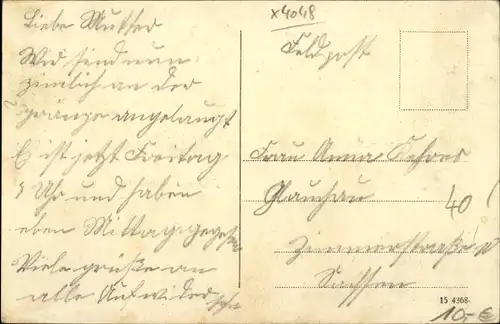 Liebe Mutter
Wir sind nun
zimlich an der
gränze angelangt
Es ist jetzt Freitag
3 Uhr und haben
eben Mittag gegessen
Viele grüße an
alle Aufwidersehn
x4048
Feldpost
Frau Anna
Glauchau
Zimmerstraße
Sachsen
40
15 4368
10,-€